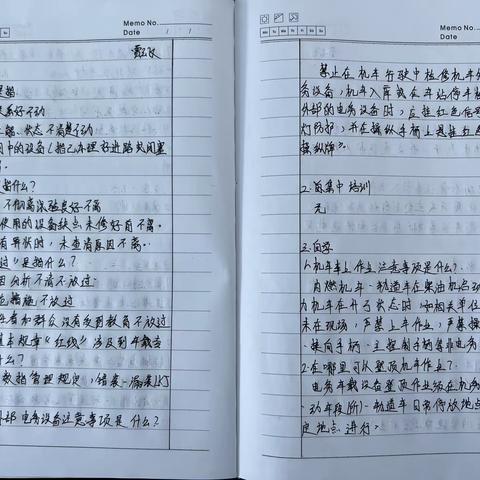 Memo No.
Date / /
不动
状态不清楚不动
用中的设备(指已办理好进路或闭塞
是指什么?
不彻底试验良好不离
使用的设备缺点未修好前不离.
有异状时,未查清原因不离.
过"是指什么?
因分析不清不放过
措施不放过
和群众没有受到教育不放过
基本规章《红线》涉及到车载
什么?
数据管理规定,错装、漏装LKJ
外部电务设备注意事项是什么?
Memo No.
Date / /
禁止在机车行驶中检修机车外
务设备,机车入库或在车站停车
外部的电务设备时,应挂红色信号
灯防护,并在操纵手柄上悬挂红色
操纵牌》.
2.自集中培训
无
3.自学
1.机车车上作业注意事项是什么?
内燃机车、轨道车在柴油机启动
力机车在升弓状态时,如相关单位
未在现场,严禁上车作业,严禁操
换向手柄、主控制手柄等非电务
2.在哪里可以登顶机车作业?
电务车载设备登顶作业须在机务
动车段(所)、轨道车日常停放地点
定地点进行.